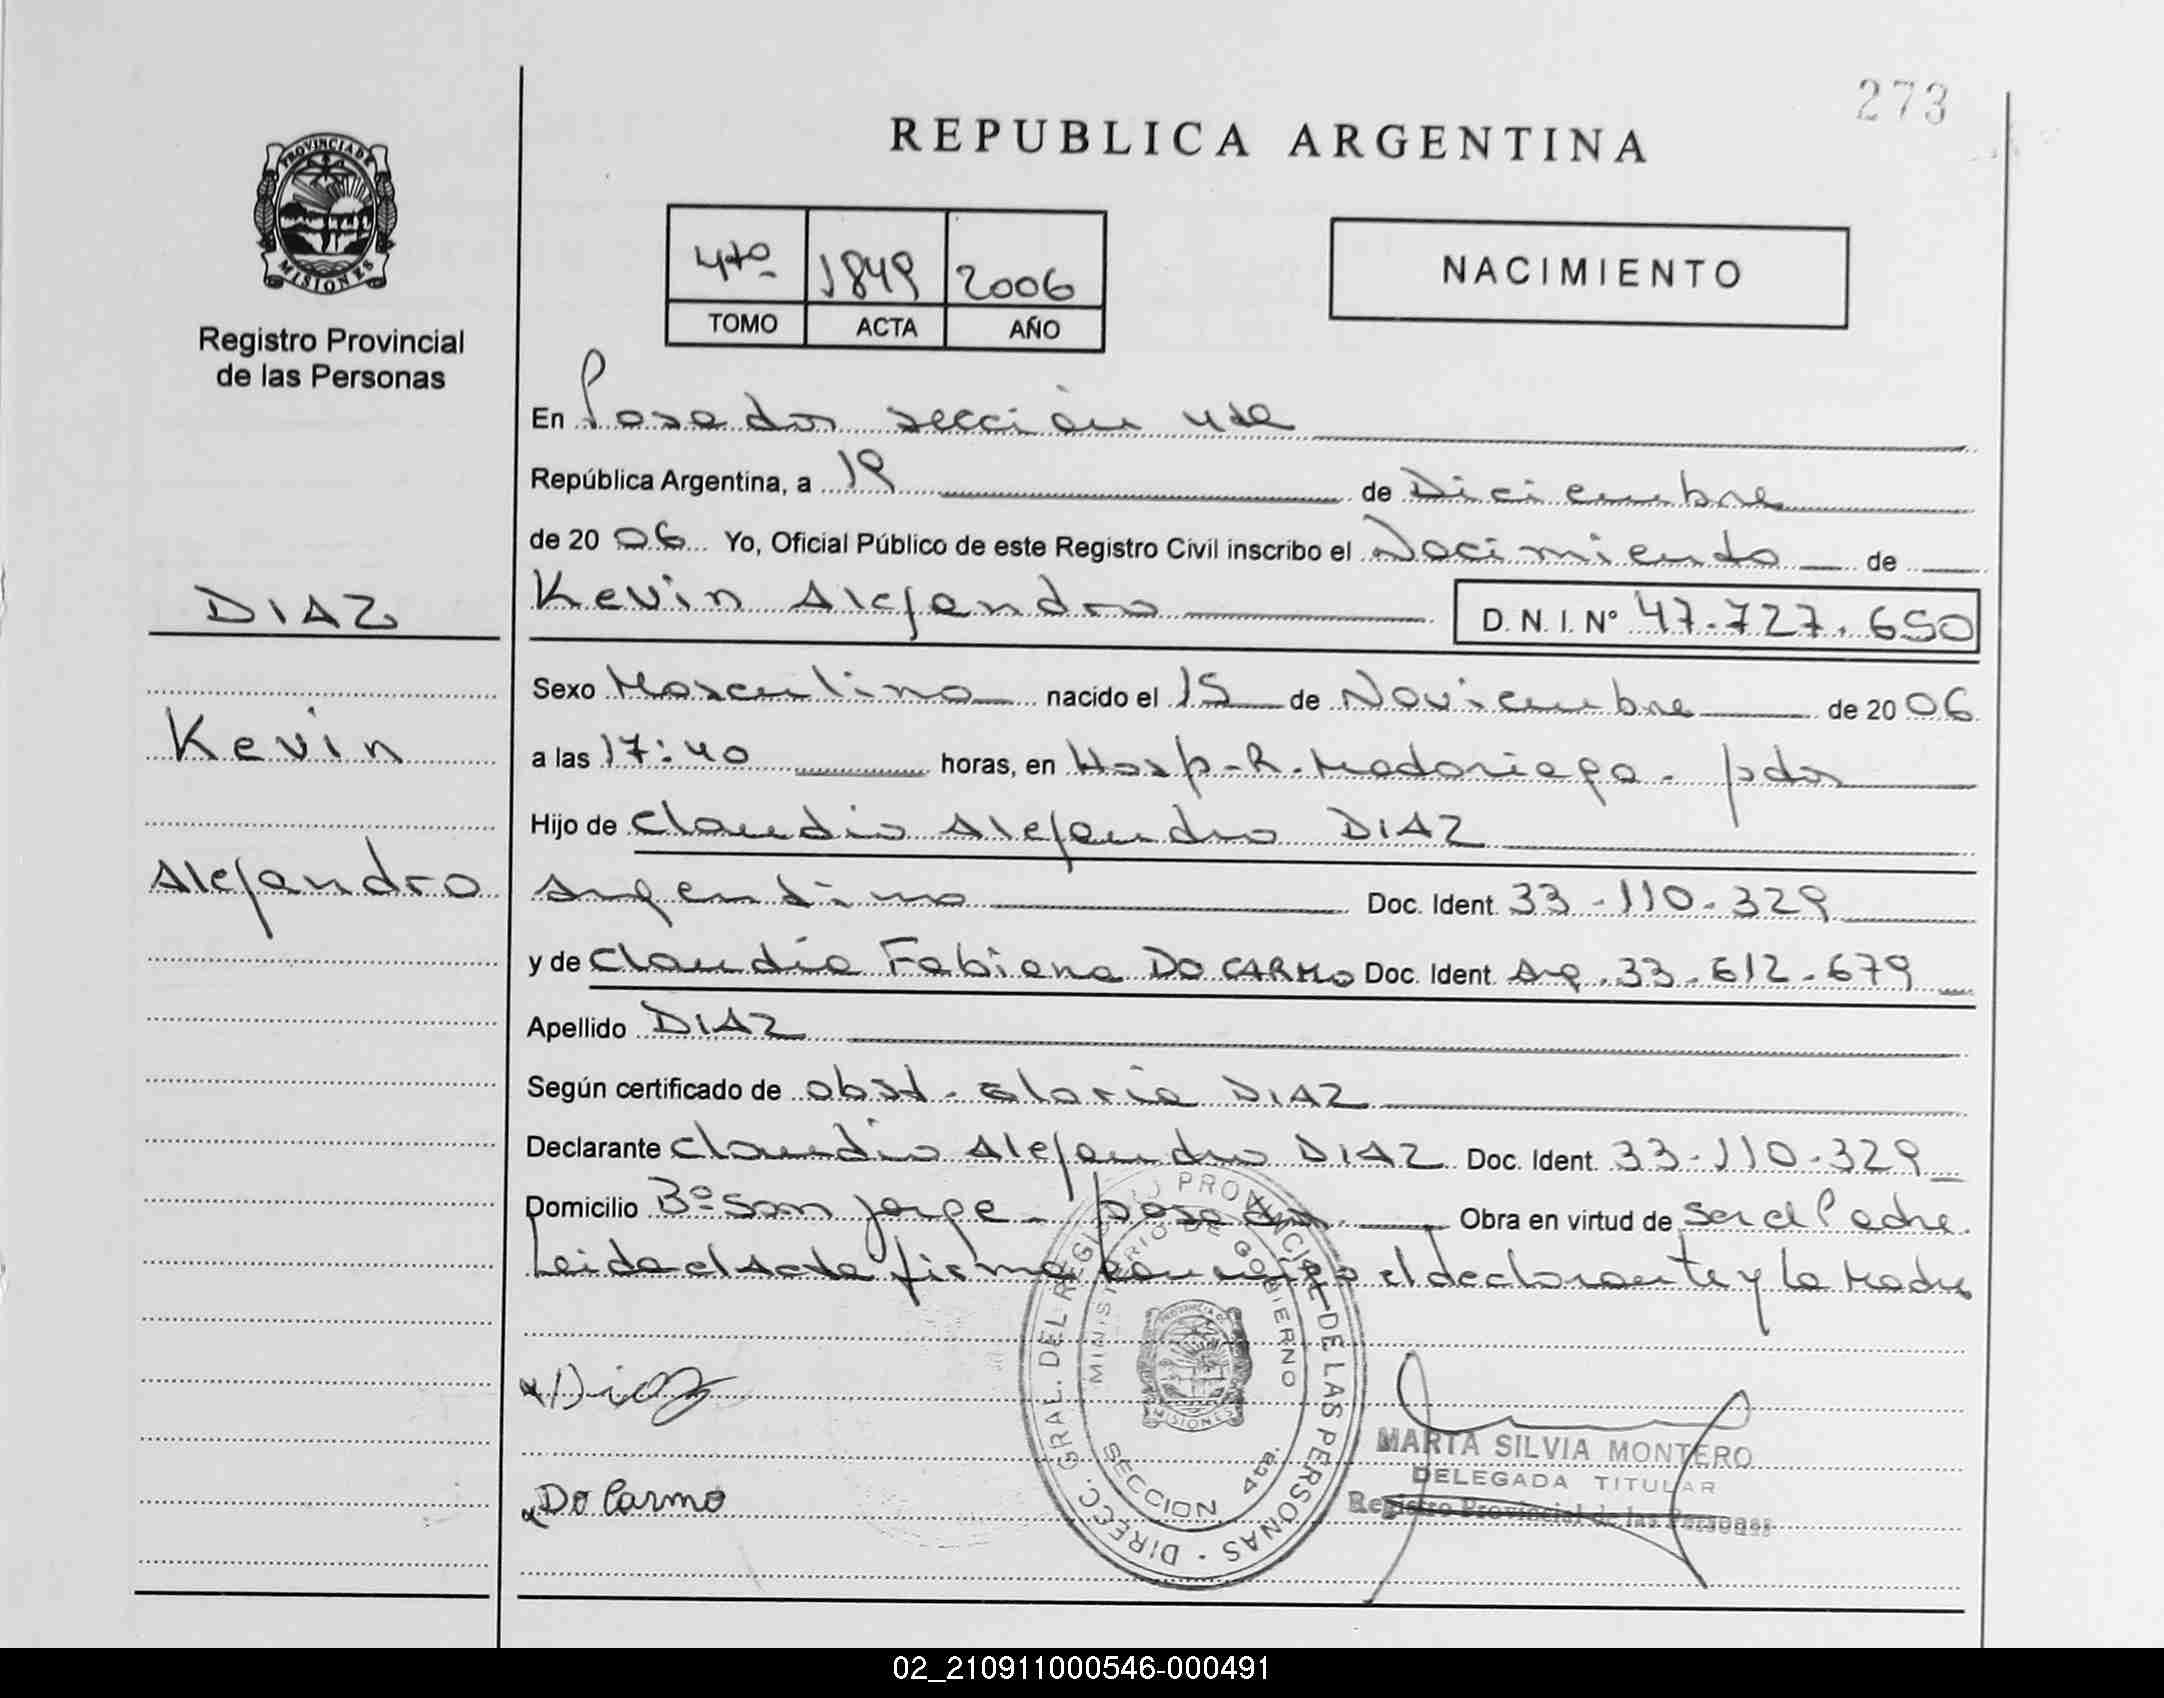 273
REPUBLICA ARGENTINA
PROVINCIA DE
MISIONES
Registro Provincial
de las Personas
4to 1849 2006
TOMO ACTA AÑO
NACIMIENTO
En Posadas sección 4ta
República Argentina, a 19 de Diciembre
de 20 06 Yo, Oficial Público de este Registro Civil inscribo el Nacimiento de
DIAZ
Kevin Alejandro D. N. I. Nº 47.727.650
Sexo Masculino nacido el 15 de Noviembre de 20 06
Kevin
a las 17:40 horas, en Hosp. R. Madariaga. pdas
Hijo de Claudio Alejandro DIAZ
Alejandro
Argentino Doc. Ident. 33.110.329
y de Claudia Fabiana DO CARMO Doc. Ident. Arg. 33.612.679
Apellido DIAZ
Según certificado de obst. Gloria DIAZ
Declarante Claudio Alejandro DIAZ Doc. Ident. 33.110.329
Domicilio Bº San Jorge - posadas Obra en virtud de ser el Padre.
Leida el Acta firma conmigo el declarante y la Madre
DIRECC. GRAL. DEL REGISTRO PROVINCIAL DE LAS PERSONAS
MINISTERIO DE GOBIERNO
PROVINCIA DE
MISIONES
SECCION 4ta.
Diaz
Do Carmo
MARTA SILVIA MONTERO
DELEGADA TITULAR
Registro Provincial de las Personas
02_210911000546-000491